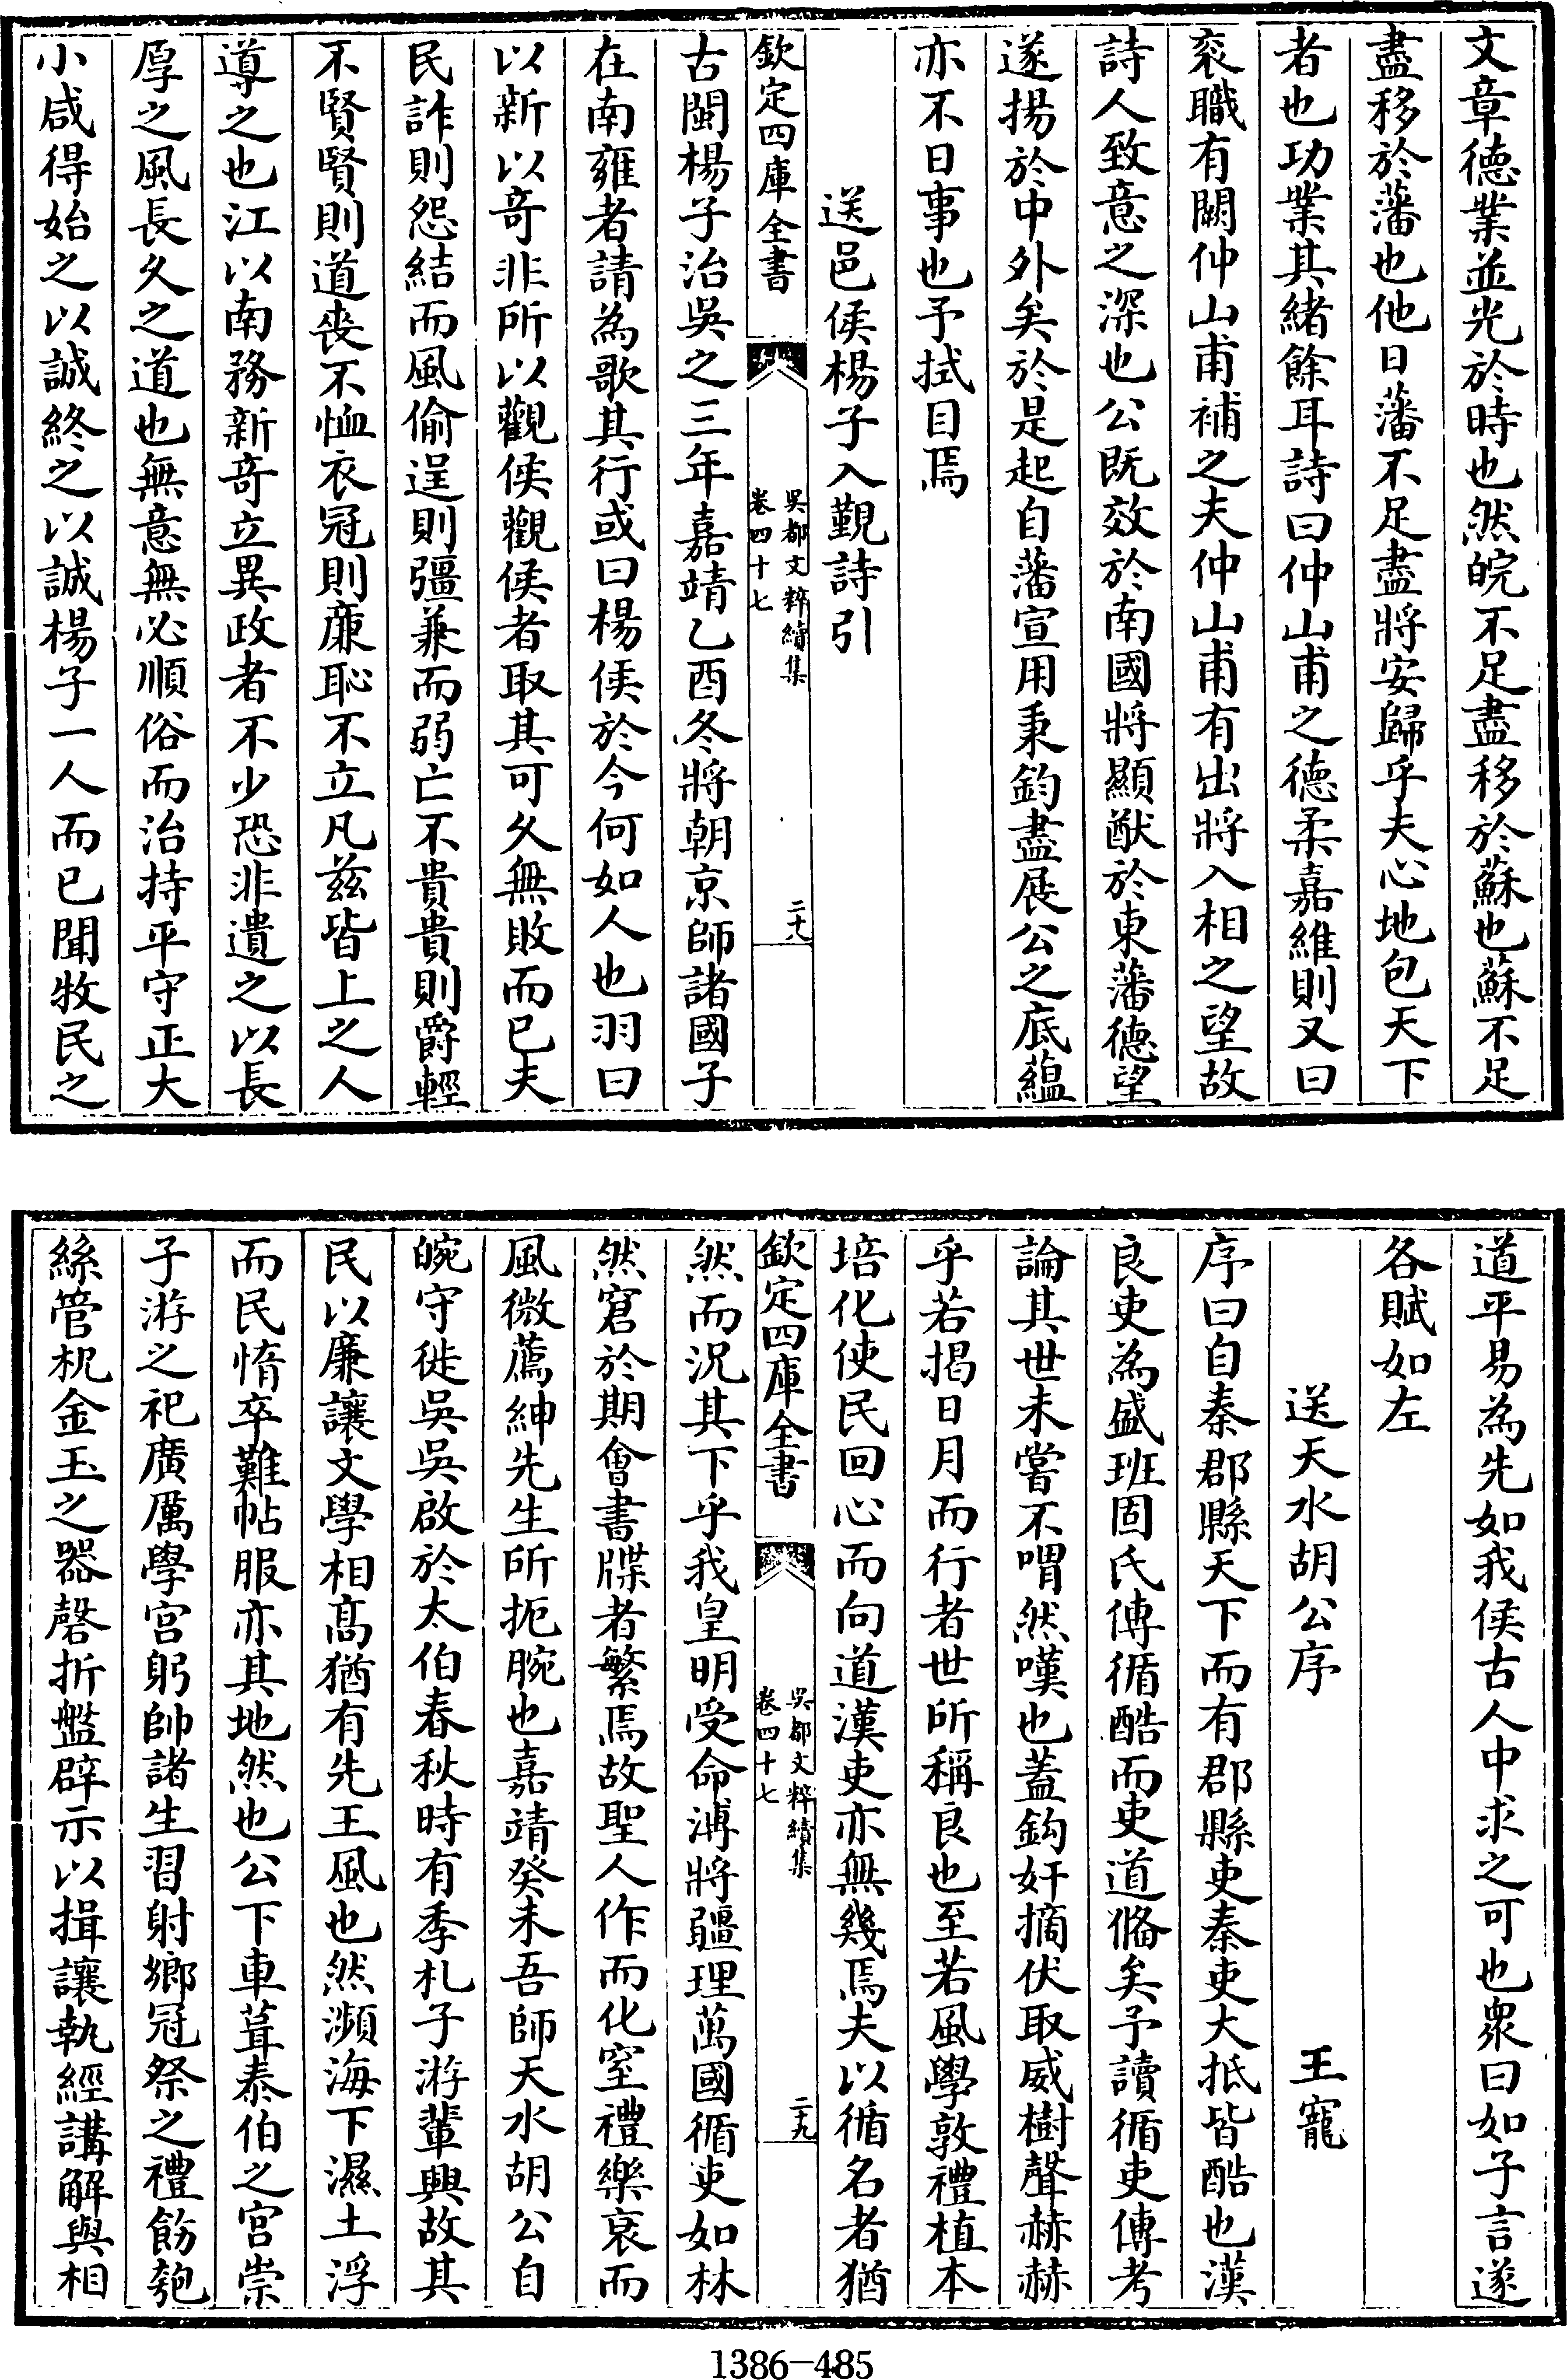 文章德業並光於時也然皖不足盡移於蘇也蘇不足
盡移於藩也他日藩不足盡將安歸乎夫心地包天下
者也功業其緒餘耳詩曰仲山甫之德柔嘉維則又曰
衮職有闕仲山甫補之夫仲山甫有出將入相之望故
詩人致意之深也公既效於南國將顯猷於東藩德望
遂揚於中外矣於是起自藩宣用秉鈞盡展公之底蘊
亦不日事也予拭目焉
送邑侯楊子入覲詩引
欽定四庫全書
吳都文粹續集
卷四十七
二十八
古閩楊子治吳之三年嘉靖乙酉冬將朝京師諸國子
在南雍者請為歌其行或曰楊侯於今何如人也羽曰
以新以奇非所以觀侯觀侯者取其可久無敗而已夫
民詐則怨結而風偷逞則彊兼而弱亡不貴貴則爵輕
不賢賢則道喪不恤衣冠則廉恥不立凡茲皆上之人
導之也江以南務新奇立異政者不少恐非遺之以長
厚之風長久之道也無意無必順俗而治持平守正大
小咸得始之以誠終之以誠楊子一人而已聞牧民之
道平易為先如我侯古人中求之可也衆曰如子言遂
各賦如左
送天水胡公序　王寵
序曰自秦郡縣天下而有郡縣吏秦吏大抵皆酷也漢
良吏為盛班固氏傳循酷而吏道俻矣予讀循吏傳考
論其世未嘗不喟然嘆也蓋鈎奸摘伏取威樹聲赫赫
乎若揭日月而行者世所稱良也至若風學敦禮植本
培化使民回心而向道漢吏亦無幾焉夫以循名者猶
欽定四庫全書
吳都文粹續集
卷四十七
二十九
然而況其下乎我皇明受命溥將疆理萬國循吏如林
然窘於期會書牒者繁焉故聖人作而化窒禮樂衰而
風微薦紳先生所扼腕也嘉靖癸未吾師天水胡公自
皖守徙吳吳啟於太伯春秋時有季札子游輩興故其
民以廉讓文學相高猶有先王風也然瀕海下濕土浮
而民惰卒難帖服亦其地然也公下車葺泰伯之宫崇
子游之祀廣厲學宫躬帥諸生習射鄉冠祭之禮飭匏
絲管柷金玉之器磬折盤辟示以揖讓執經講解與相
1386-485